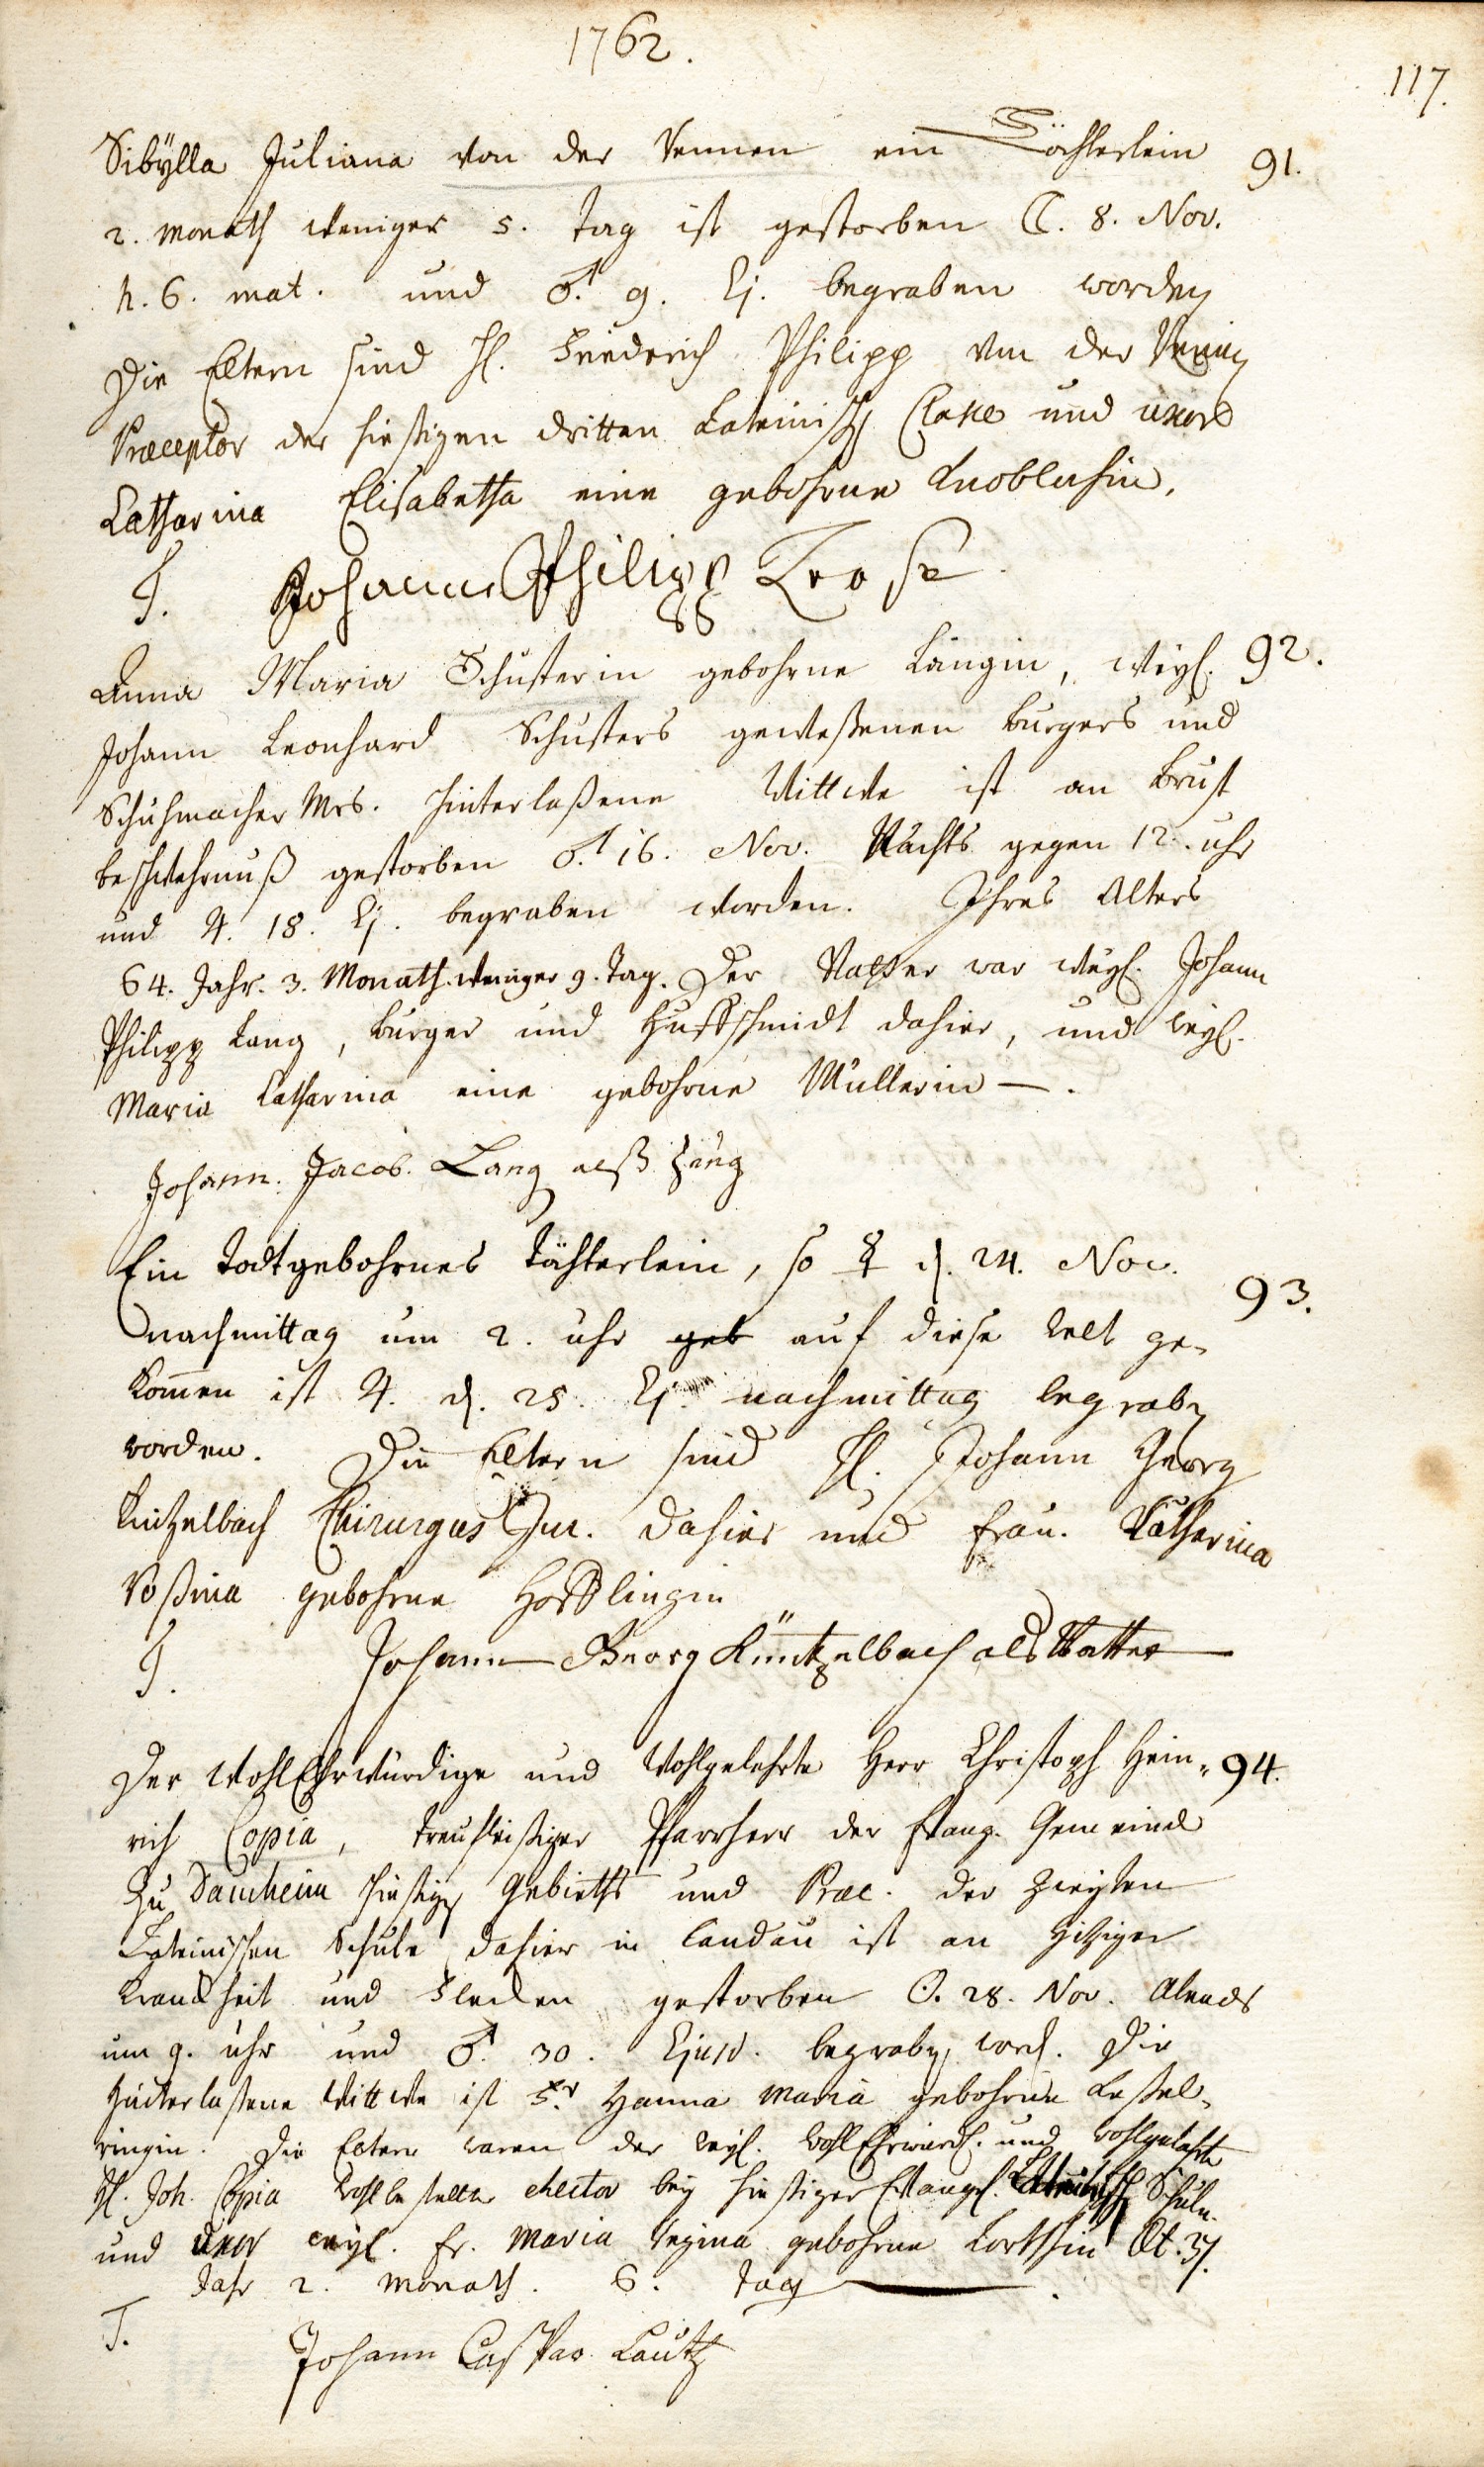 1762.
117.
Sibÿlla Juliana von der Vennen ein Töchterlein 91.
2. Monath weniger 5. Tag ist gestorben ☾. 8. Nov.
h. 6. mat. und ♂. 9. Ej. begraben worden
Die Eltern sind H. Friederich Philipp von der Vennen
Præceptor der hiesigen dritten Lateinisch Classe und uxor
Catharina Elisabetha eine gebohrne Knoblochin.
T. Johann Philipp
Anna Maria Schusterin gebohrne Längin, weyl. 92.
Johann Leonhard Schusters geweßenen burgers und
Schuhmacher Mrs. hinterlaßene Wittwe ist an Brust
beschwehrnuß gestorben ♂. 16. Nov. Nachts gegen 12. uhr
und ♃. 18. Ej. begraben worden. Ihres Alters
64. Jahr. 3. Monath. weniger 9. Tag. Der Vatter war weyl. Johann
Philipp Lang, burger und Huffschmidt dahier, und weyl.
Maria Catharina eine gebohrne Müllerin —.
Johann Jacob Lang alß Zeug
Ein todtgebohrnes Töchterlein, so ☿ d. 24. Nov. 93.
nachmittag um 2. uhr geb auf diese welt ge-
kom̄en ist ♃. d. 25. Ej. nachmittag begraben
worden. Die Eltern sind H. Johann Georg
Kintzelbach Chirurgus Jur. dahier und frau Catharina
Roßina gebohrne Hofflingin
T. Johann Georg Küntzelbach als Vatter
Der WohlEhrwürdige und Wohlgelehrte Herr Christoph Hein- 94.
rich Copia, treufleißiger Pfarrherr der Evang. Gemeinde
zu Damheim hiesigen Gebieths und Præc. der zweyten
Lateinischen Schule dahier in Landau ist an hitziger
Kranckheit und Flecken gestorben ☉. 28. Nov. Abends
um 9. uhr und ♂. 30. Ejusd. begraben word. Die
hinterlaßene Wittwe ist Fr. Hanna Maria gebohrne Keßel-
ringin. Die Eltern waren der weyl. WohlEhrwürd. und wohlgelahrte
H. Joh. Copia wohlbestellter Rector bey hiesiger Evangel. Lateinisch Schule
und uxor weyl. Fr. Maria Regina gebohrne Æt. 37.
Jahr 2. Monath. 6. Tag
T. Johann Casspar Lautz